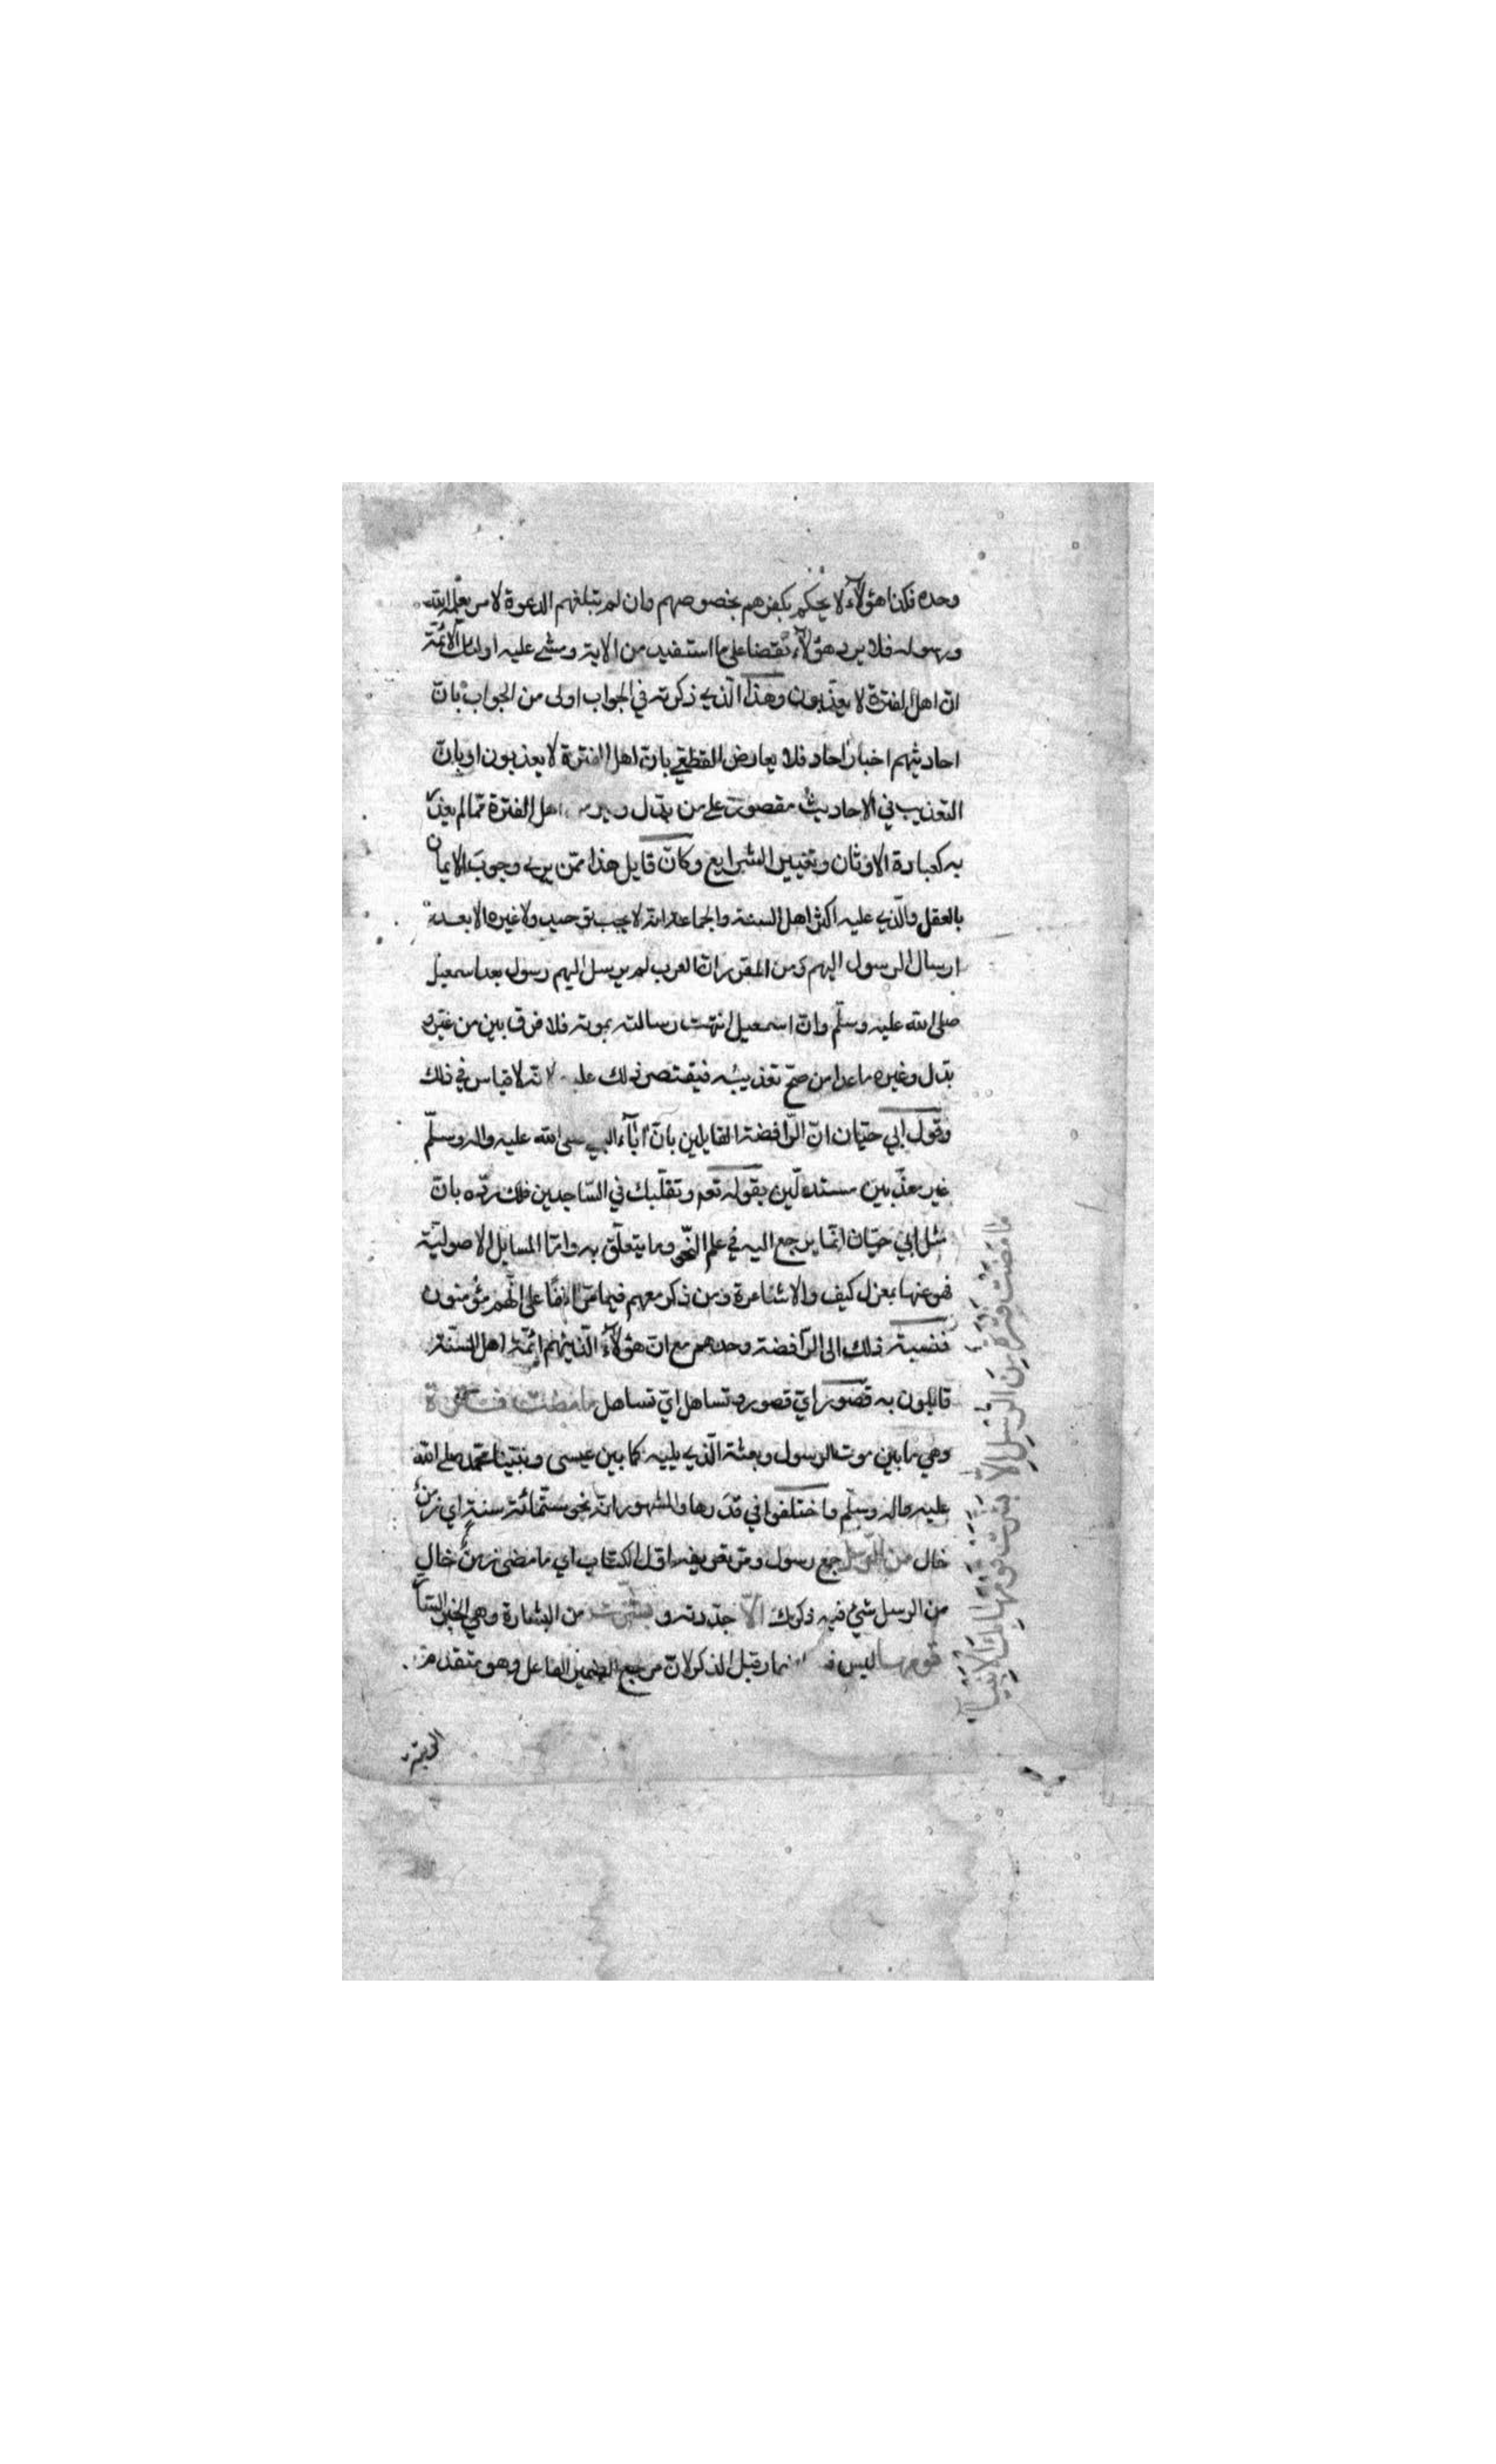 وحده فكذا هؤلآء لا يحكم بكفرهم بخصوصهم وان لم تبلغهم الدعوة لامر يعلمه الله
ورسوله فلا يرد هؤلآء نقضا على ما استفيد من الاية ومشى عليه اولئك الائمة
ان اهل الفترة لا يعذبون وهذا الذي ذكرته في الجواب اولى من الجواب بان
احاديثهم اخبار احاد فلا يعارض القطعي بان اهل الفترة لا يعذبون او بان
التعذيب في الاحاديث مقصور على من بدل اهل الفترة مما لم يعذر
به كعبادة الاوثان وتغيير الشرايع وكان قايل هذا ممن يرى وجوب الايمان
بالعقل والذي عليه اكثر اهل السنة والجماعة انه لا يجب توحيد ولا غيره الا بعد
ارسال الرسول اليهم ومن المقرر ان العرب لم يرسل اليهم رسول بعد اسمعيل
صلى الله عليه وسلم وان اسمعيل انتهت رسالته بموته فلا فرق بين من غير و
بدل وغيره ما عدا من صح تعذيبه فيقتصر ذلك عليه لانه لا قياس في ذلك
وقول ابي حيان ان الرافضة القايلين بان اباء النبي صلى الله عليه واله وسلم
غير معذبين مستدلين بقوله تعم وتقلبك في الساجدين فلك رده بان
مثل ابي حيان انما يرجع اليه في علم النحو وما يتعلق به واما المسايل الاصولية
فهو عنها بمعزل كيف والاشاعرة ومن ذكر معهم فيما مر انفا على انهم مؤمنون
فنسبة ذلك الى الرافضة وحدهم مع ان هؤلآء الذين هم ائمة اهل السنة
قايلون به قصور اي قصور وتساهل اي تساهل ما مضت فترة
وهي ما بين موت الرسول وبعثة الذي يليه كما بين عيسى ونبينا محمد صلى الله
عليه واله وسلم واختلفوا في قدرها والمشهور انه نحو ستمائة سنة اي زمن
خال من الرسل جمع رسول ومر تعريفه اول الكتاب اي ما مضى زمن خال
من الرسل شئ فيه ذكرك الا جددته و بشرت من البشارة وهي الخبر السار
قومها ليس قبل الذكر لان مرجع الضمير الفاعل وهو متقدم
ما مضت فترة من الرسل الا بشرت قومها بك الانبياء